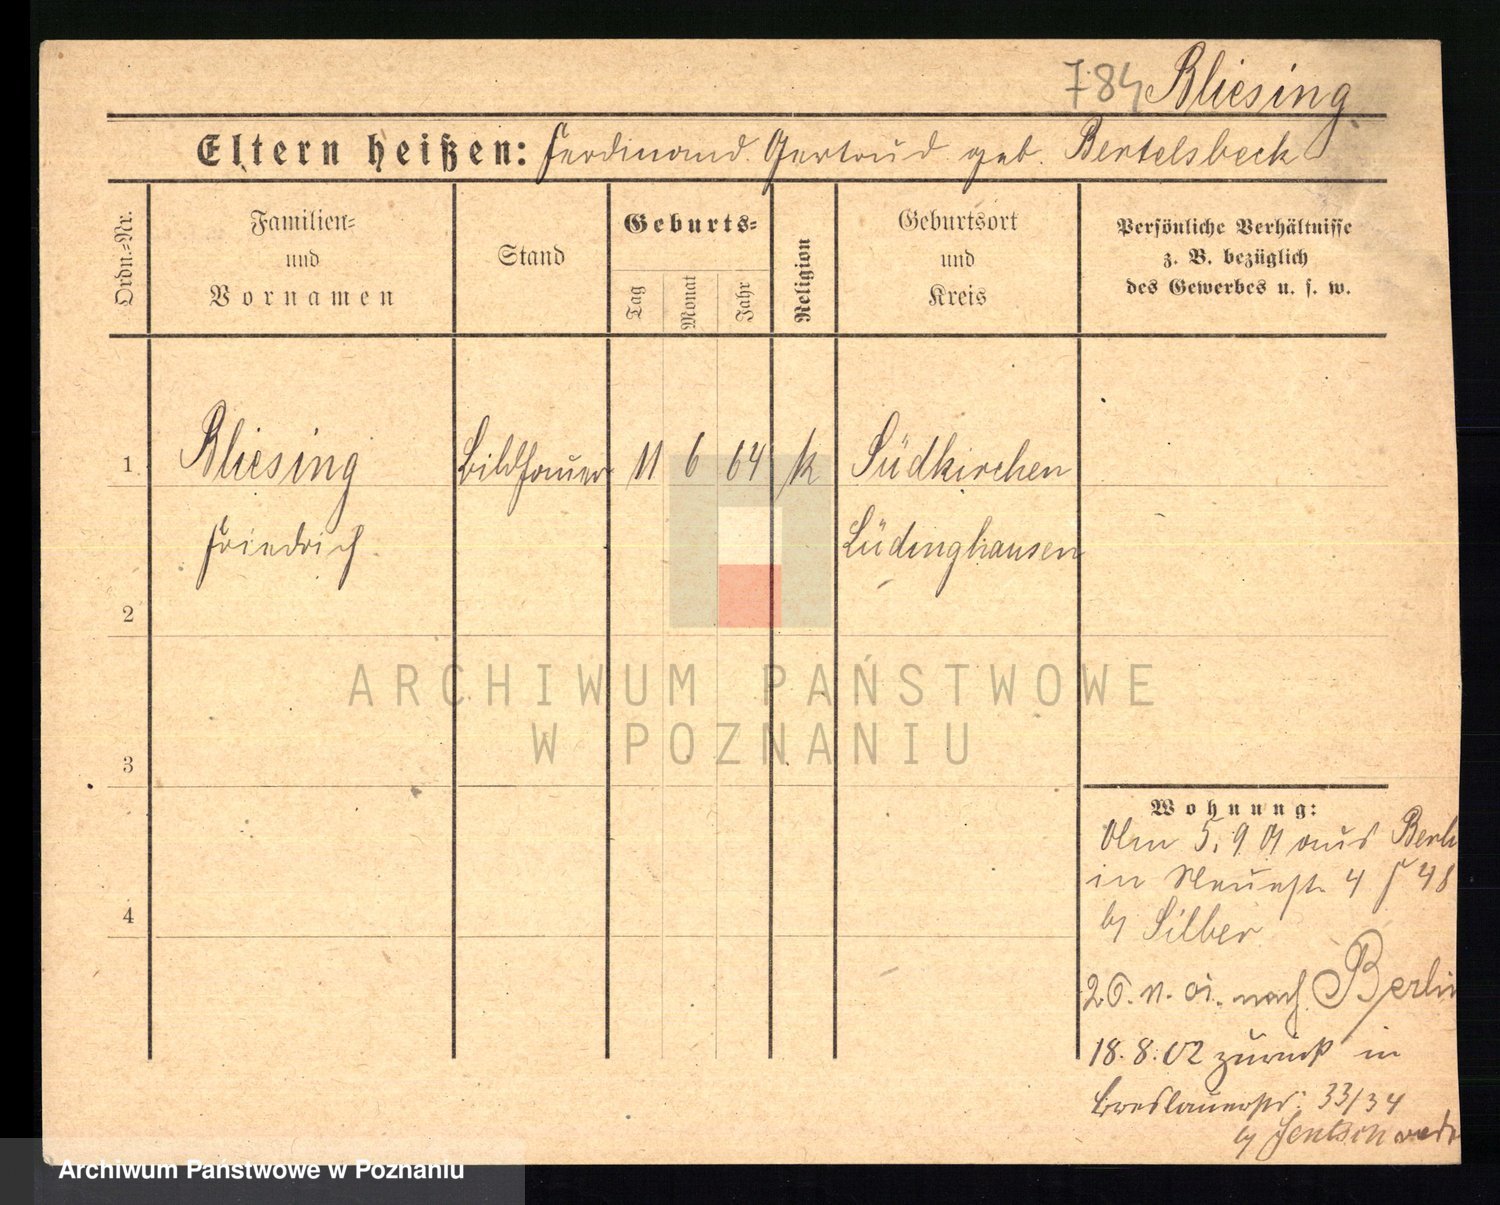 784 Bliesing
Eltern heißen: Ferdinand. Gertrud geb. Bertelsbeck
Ordn.=Nr.
Familien=
und
Vornamen
Stand
Geburts=
Tag
Monat
Jahr
Religion
Geburtsort
und
Kreis
Persönliche Verhältnisse
z. B. bezüglich
des Gewerbes u. s. w.
1 Bliesing Bildhauer 11 6 64 k Südkirchen
Friedrich. Lüdinghausen
2
ARCHIWUM PAŃSTWOWE
W POZNANIU
3
Wohnung:
5. 9 01 aus Berli
in Neuestr. 4 48
4
by Silber
nach Berlin
18. 8. 02 zurück in
Breslauerstr: 33/34
by
Archiwum Państwowe w Poznaniu